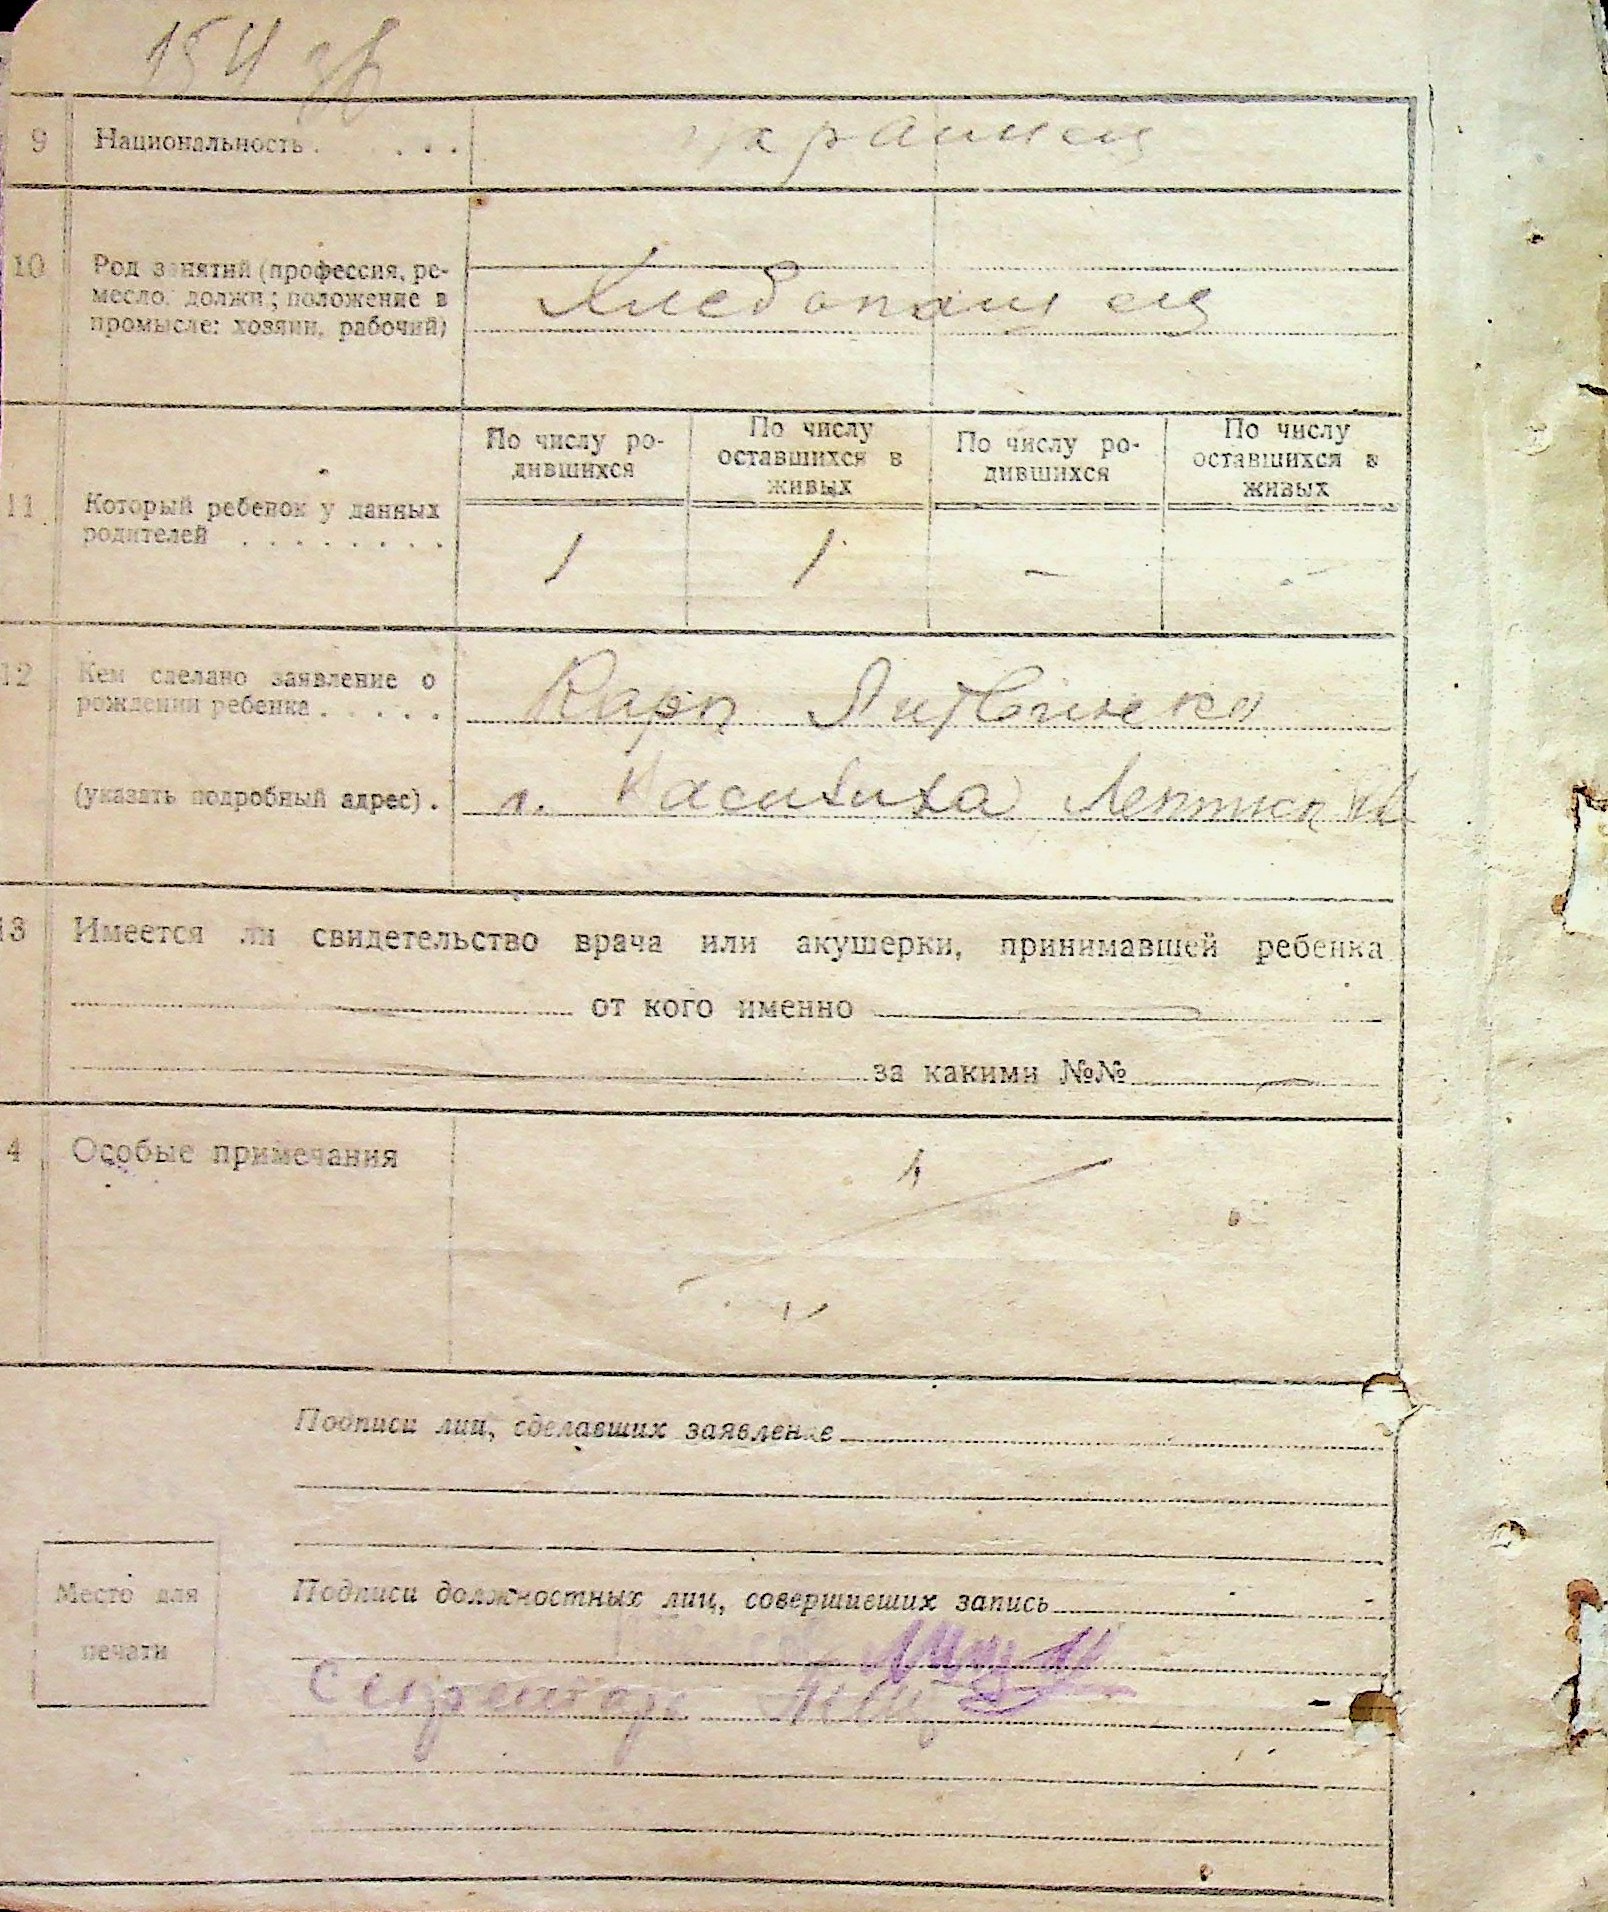 154 зв
9 Национальность . . . . украинец
10 Род занятий (профессия, ре-
месло, должн; положение в
промысле: хозяин, рабочий)
Хлебопашец
По числу ро-
дившихся
По числу
оставшихся в
живых
По числу ро-
дившихся
По числу
оставшихся в
живых
11 Который ребенок у данных
родителей . . . . . . . . 1 1 - -
12 Кем сделано заявление о
рождении ребенка . . . . . Карп Литвиненко
(указать подробный адрес) .
13 Имеется ли свидетельство врача или акушерки, принимавшей ребенка
от кого именно
за какими №№
4 Особые примечания
Подписи лиц, сделавших заявление
Подписи должностных лиц, совершивших запись
Место для
печати
Секретарь